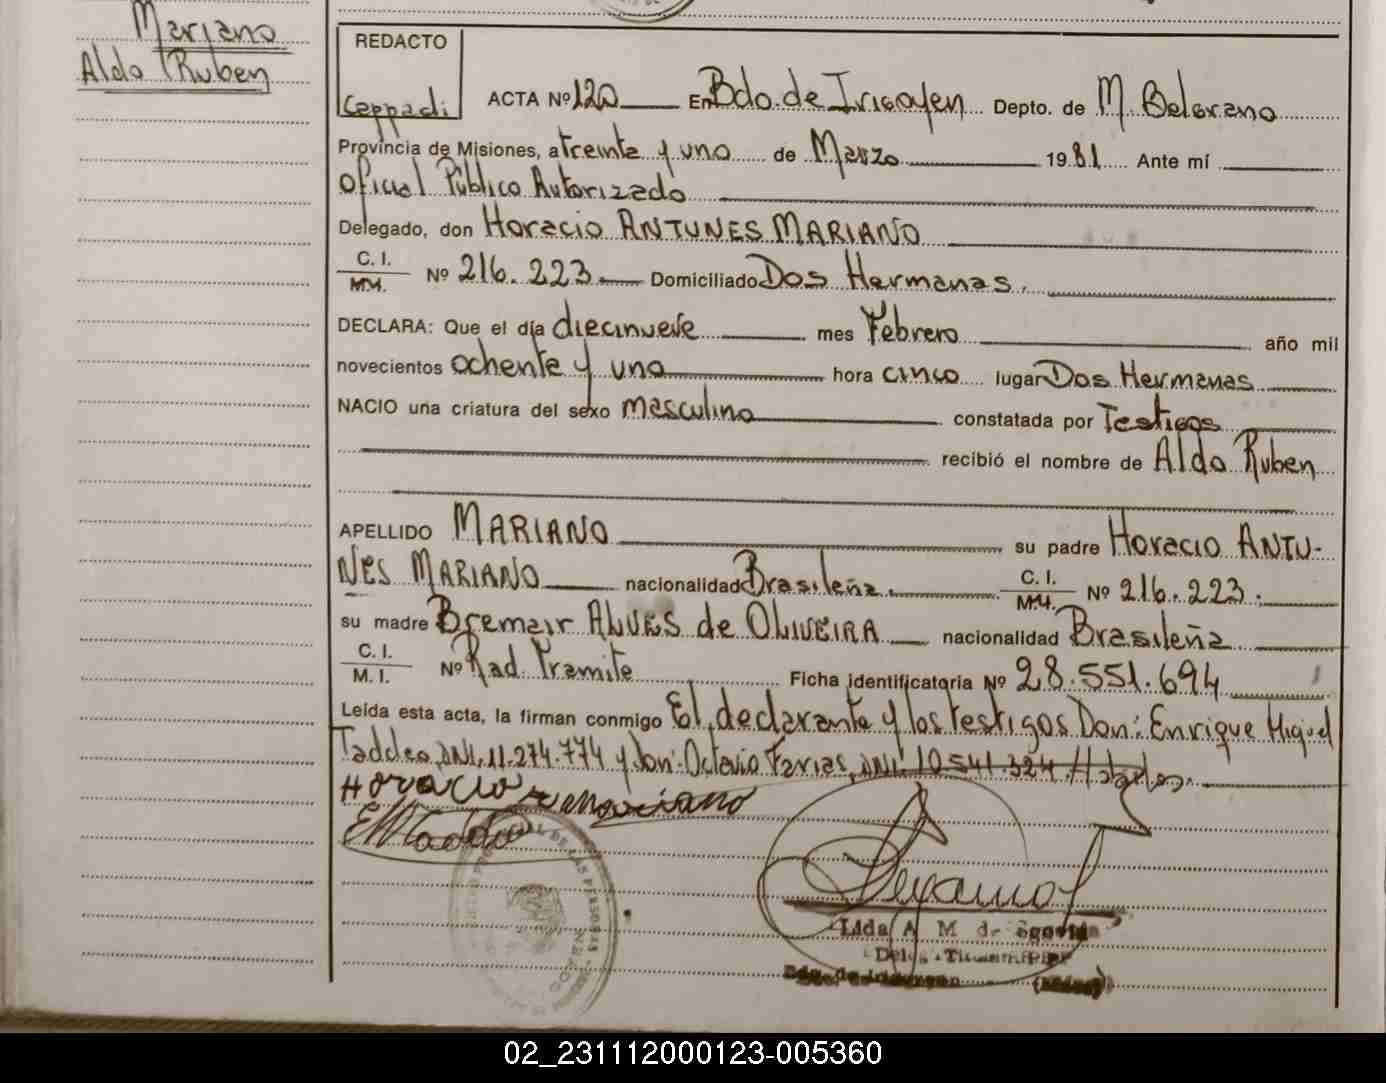 Mariano
Aldo Ruben
REDACTO
Ceppadi
ACTA Nº 120 En Bdo. de Irigoyen Depto. de M. Belgrano
Provincia de Misiones, a treinta y uno de Marzo 1981 Ante mí
Oficial Público Autorizado
Delegado, don Horacio ANTUNES MARIANO
C. I.
M.I. Nº 216.223.- Domiciliado Dos Hermanas.
DECLARA: Que el día diecinueve mes Febrero año mil
novecientos ochenta y uno hora cinco lugar Dos Hermanas
NACIO una criatura del sexo masculino constatada por Testigos
recibió el nombre de Aldo Ruben
APELLIDO MARIANO su padre Horacio ANTU-
NES MARIANO nacionalidad Brasileña. C. I.
M.I. Nº 216.223.
su madre Bremair ALVES de OLIVEIRA nacionalidad Brasileña
C. I.
M. I. Nº Rad. Tramite Ficha identificatoria Nº 28.551.694
Leída esta acta, la firman conmigo El declarante y los testigos Don: Enrique Miguel
Taddeo, DNI. 11.274.774 y Don: Octavio Farias, DNI. 10.541.324
Horacio
Lida A M de Segovia
02_231112000123-005360